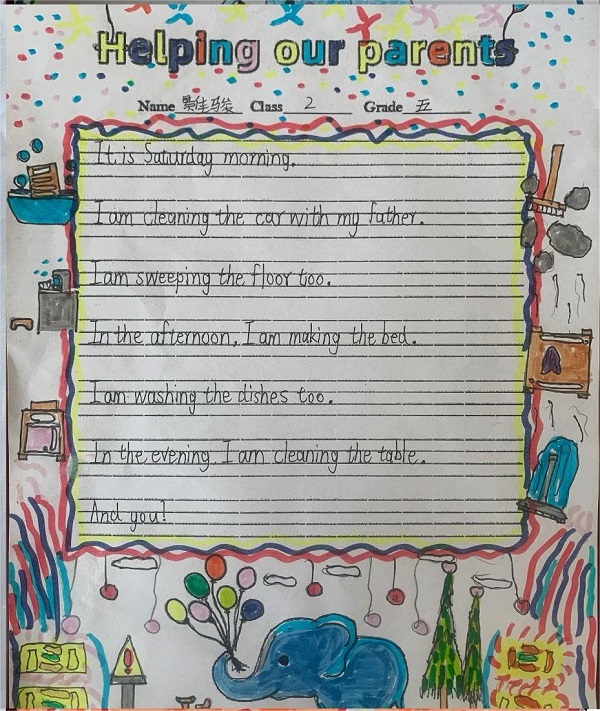 Helping our parents
Name Class 2 Grade 五
It is Saturday morning.
I am cleaning the car with my father.
I am sweeping the floor too.
In the afternoon, I am making the bed.
I am washing the dishes too.
In the evening. I am cleaning the table.
And you!